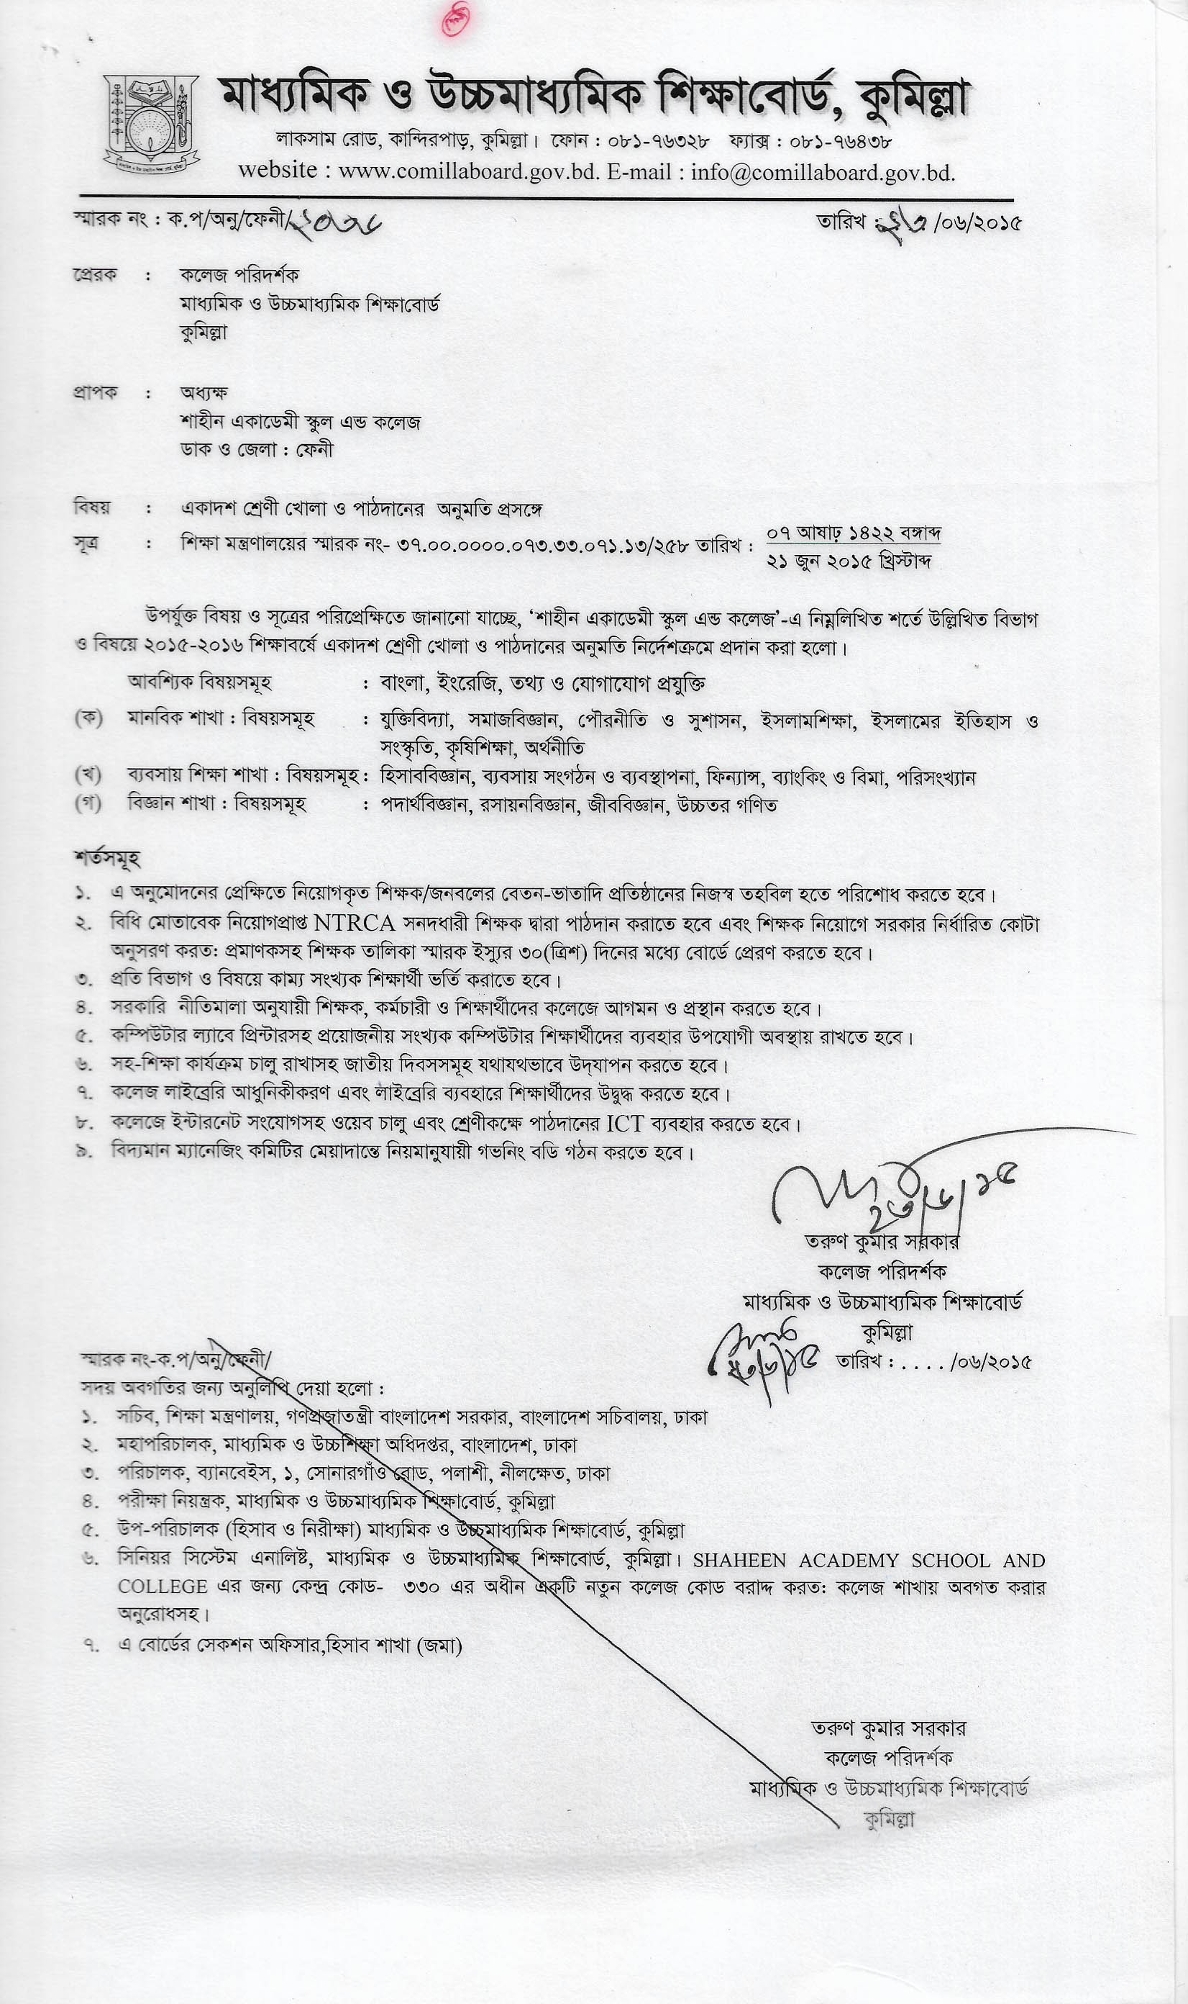 মাধ্যমিক ও উচ্চমাধ্যমিক শিক্ষাবোর্ড, কুমিল্লা
লাকসাম রোড, কান্দিরপাড়, কুমিল্লা। ফোন : ০৮১-৭৬৩২৮ ফ্যাক্স : ০৮১-৭৬৪৩৮
website : www.comillaboard.gov.bd. E-mail : info@comillaboard.gov.bd.
স্মারক নং : ক.প/অনু/ফেনী/
তারিখ : ২৩ /০৬/২০১৫
প্রেরক : কলেজ পরিদর্শক
মাধ্যমিক ও উচ্চমাধ্যমিক শিক্ষাবোর্ড
কুমিল্লা
প্রাপক : অধ্যক্ষ
শাহীন একাডেমী স্কুল এন্ড কলেজ
ডাক ও জেলা : ফেনী
বিষয় : একাদশ শ্রেণী খোলা ও পাঠদানের অনুমতি প্রসঙ্গে
সূত্র : শিক্ষা মন্ত্রণালয়ের স্মারক নং- ৩৭.০০.০০০০.০৭৩.৩৩.০৭১.১৩/২৫৮ তারিখ : ০৭ আষাঢ় ১৪২২ বঙ্গাব্দ
২১ জুন ২০১৫ খ্রিস্টাব্দ
উপর্যুক্ত বিষয় ও সূত্রের পরিপ্রেক্ষিতে জানানো যাচ্ছে, ‘শাহীন একাডেমী স্কুল এন্ড কলেজ’-এ নিম্নলিখিত শর্তে উল্লিখিত বিভাগ
ও বিষয়ে ২০১৫-২০১৬ শিক্ষাবর্ষে একাদশ শ্রেণী খোলা ও পাঠদানের অনুমতি নির্দেশক্রমে প্রদান করা হলো।
আবশ্যিক বিষয়সমূহ : বাংলা, ইংরেজি, তথ্য ও যোগাযোগ প্রযুক্তি
(ক) মানবিক শাখা : বিষয়সমূহ : যুক্তিবিদ্যা, সমাজবিজ্ঞান, পৌরনীতি ও সুশাসন, ইসলামশিক্ষা, ইসলামের ইতিহাস ও
সংস্কৃতি, কৃষিশিক্ষা, অর্থনীতি
(খ) ব্যবসায় শিক্ষা শাখা : বিষয়সমূহ : হিসাববিজ্ঞান, ব্যবসায় সংগঠন ও ব্যবস্থাপনা, ফিন্যান্স, ব্যাংকিং ও বিমা, পরিসংখ্যান
(গ) বিজ্ঞান শাখা : বিষয়সমূহ : পদার্থবিজ্ঞান, রসায়নবিজ্ঞান, জীববিজ্ঞান, উচ্চতর গণিত
শর্তসমূহ
১. এ অনুমোদনের প্রেক্ষিতে নিয়োগকৃত শিক্ষক/জনবলের বেতন-ভাতাদি প্রতিষ্ঠানের নিজস্ব তহবিল হতে পরিশোধ করতে হবে।
২. বিধি মোতাবেক নিয়োগপ্রাপ্ত NTRCA সনদধারী শিক্ষক দ্বারা পাঠদান করাতে হবে এবং শিক্ষক নিয়োগে সরকার নির্ধারিত কোটা
অনুসরণ করত: প্রমাণকসহ শিক্ষক তালিকা স্মারক ইস্যুর ৩০(ত্রিশ) দিনের মধ্যে বোর্ডে প্রেরণ করতে হবে।
৩. প্রতি বিভাগ ও বিষয়ে কাম্য সংখ্যক শিক্ষার্থী ভর্তি করাতে হবে।
৪. সরকারি নীতিমালা অনুযায়ী শিক্ষক, কর্মচারী ও শিক্ষার্থীদের কলেজে আগমন ও প্রস্থান করতে হবে।
৫. কম্পিউটার ল্যাবে প্রিন্টারসহ প্রয়োজনীয় সংখ্যক কম্পিউটার শিক্ষার্থীদের ব্যবহার উপযোগী অবস্থায় রাখতে হবে।
৬. সহ-শিক্ষা কার্যক্রম চালু রাখাসহ জাতীয় দিবসসমূহ যথাযথভাবে উদ্‌যাপন করতে হবে।
৭. কলেজ লাইব্রেরি আধুনিকীকরণ এবং লাইব্রেরি ব্যবহারে শিক্ষার্থীদের উদ্বুদ্ধ করতে হবে।
৮. কলেজে ইন্টারনেট সংযোগসহ ওয়েব চালু এবং শ্রেণীকক্ষে পাঠদানের ICT ব্যবহার করতে হবে।
৯. বিদ্যমান ম্যানেজিং কমিটির মেয়াদান্তে নিয়মানুযায়ী গভর্নিং বডি গঠন করতে হবে।
২৩/৬/১৫
তরুণ কুমার সরকার
কলেজ পরিদর্শক
মাধ্যমিক ও উচ্চমাধ্যমিক শিক্ষাবোর্ড
কুমিল্লা
২৩/৬/১৫
স্মারক নং-ক.প/অনু/ফেনী/
তারিখ : . . . . /০৬/২০১৫
সদয় অবগতির জন্য অনুলিপি দেয়া হলো :
১. সচিব, শিক্ষা মন্ত্রণালয়, গণপ্রজাতন্ত্রী বাংলাদেশ সরকার, বাংলাদেশ সচিবালয়, ঢাকা
২. মহাপরিচালক, মাধ্যমিক ও উচ্চশিক্ষা অধিদপ্তর, বাংলাদেশ, ঢাকা
৩. পরিচালক, ব্যানবেইস, ১, সোনারগাঁও রোড, পলাশী, নীলক্ষেত, ঢাকা
৪. পরীক্ষা নিয়ন্ত্রক, মাধ্যমিক ও উচ্চমাধ্যমিক শিক্ষাবোর্ড, কুমিল্লা
৫. উপ-পরিচালক (হিসাব ও নিরীক্ষা) মাধ্যমিক ও উচ্চমাধ্যমিক শিক্ষাবোর্ড, কুমিল্লা
৬. সিনিয়র সিস্টেম এনালিষ্ট, মাধ্যমিক ও উচ্চমাধ্যমিক শিক্ষাবোর্ড, কুমিল্লা। SHAHEEN ACADEMY SCHOOL AND
COLLEGE এর জন্য কেন্দ্র কোড- ৩৩০ এর অধীন একটি নতুন কলেজ কোড বরাদ্দ করত: কলেজ শাখায় অবগত করার
অনুরোধসহ।
৭. এ বোর্ডের সেকশন অফিসার,হিসাব শাখা (জমা)
তরুণ কুমার সরকার
কলেজ পরিদর্শক
মাধ্যমিক ও উচ্চমাধ্যমিক শিক্ষাবোর্ড
কুমিল্লা